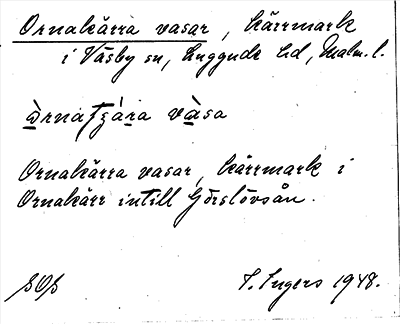 Ornakärra vasar, kärrmark
i Väsby sn, Luggude hd, Malm. l.
Ornakärra vasar, kärrmark i
Ornakärr intill Görslövsån.
I. Ingers 1948.